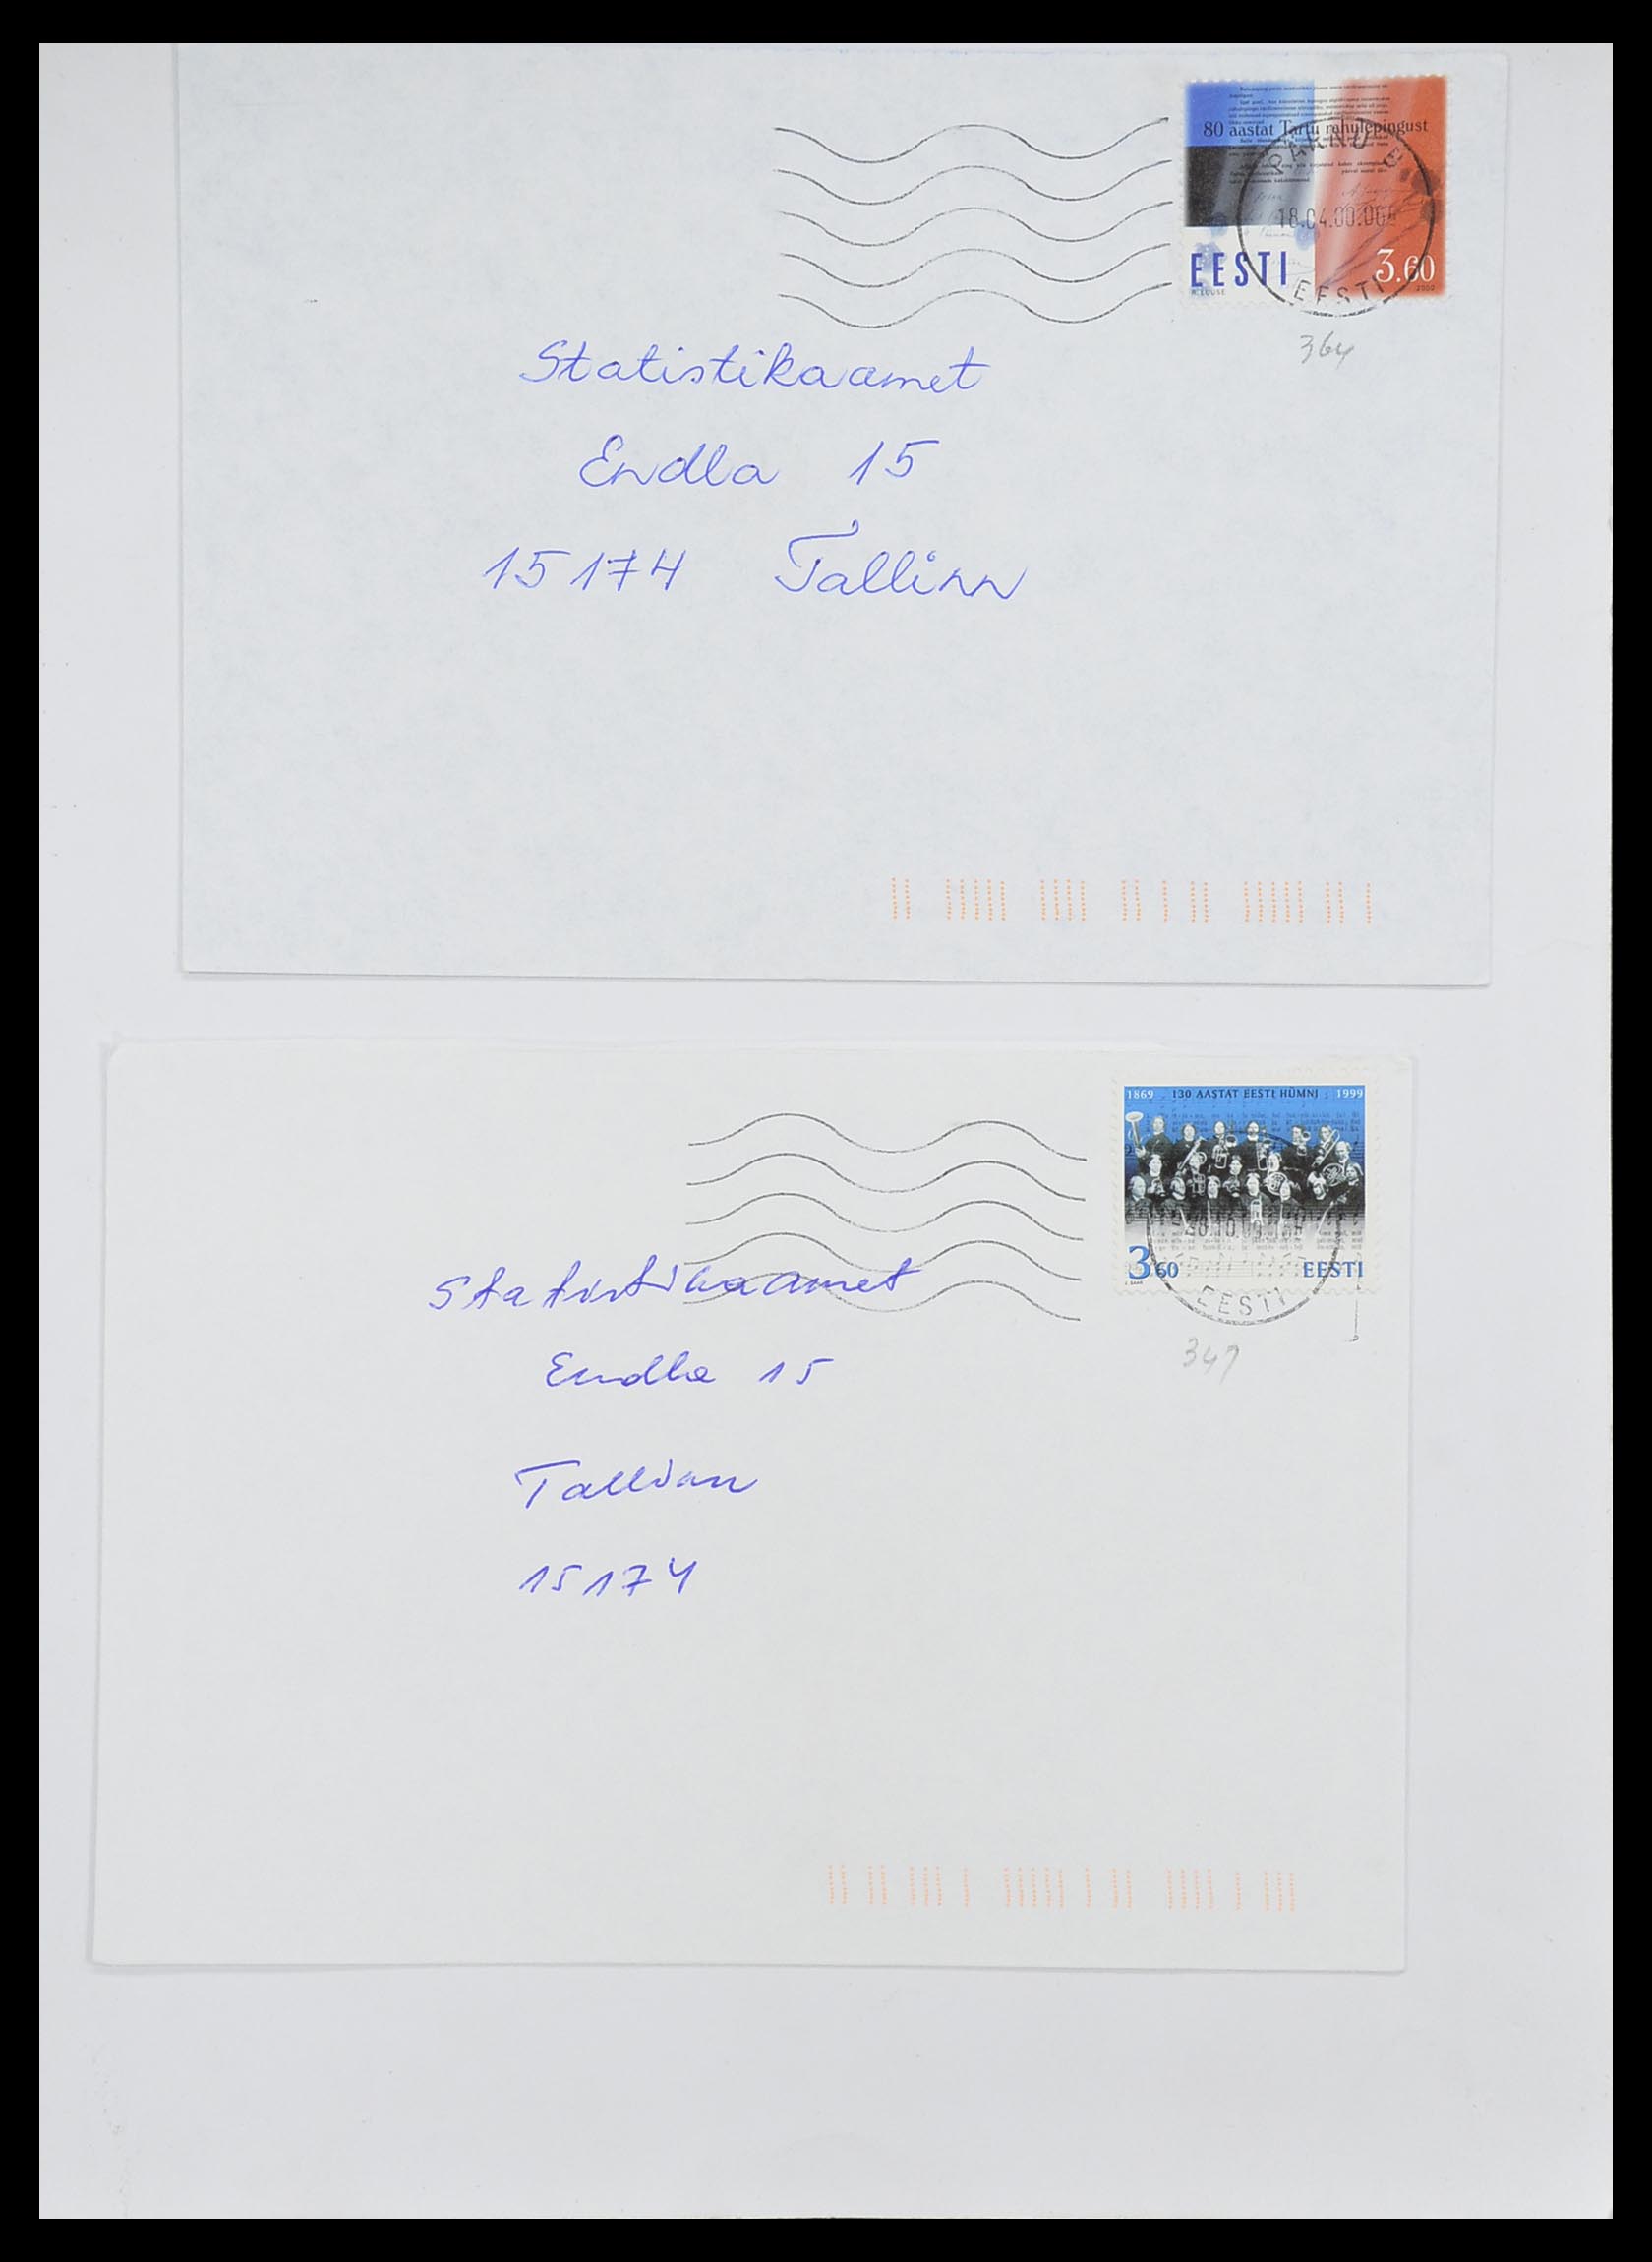 80 aastat Tartu rahulepingust
PÄRNU
18.04.00
EESTI
3.60
2000
EESTI
364
Statistikaamet
Endla 15
15174 Tallinn
1869 130 AASTAT EESTI HÜMNI 1999
3.60 EESTI
EESTI
347
Statistikaamet
Endla 15
Tallinn
15174